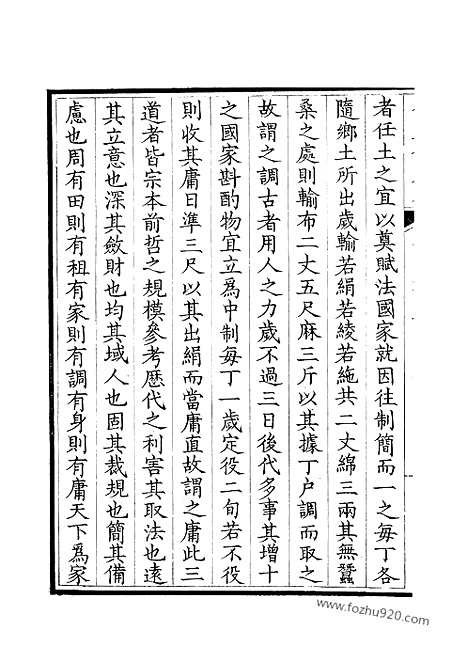 者任土之宜以奠賦法國家就因往制簡而一之每丁各
隨鄉土所出歲輸若絹若綾若絁共二丈綿三兩其無蠶
桑之處則輸布二丈五尺麻三斤以其據丁户調而取之
故謂之調古者用人之力歲不過三日後代多事其增十
之國家斟酌物宜立爲中制每丁一歲定役二旬若不役
則收其庸日準三尺以其出絹而當庸直故謂之庸此三
道者皆宗本前哲之規模參考歴代之利害其取法也遠
其立意也深其斂財也均其域人也固其裁規也簡其備
慮也周有田則有租有家則有調有身則有庸天下爲家
www.fozhu920.com